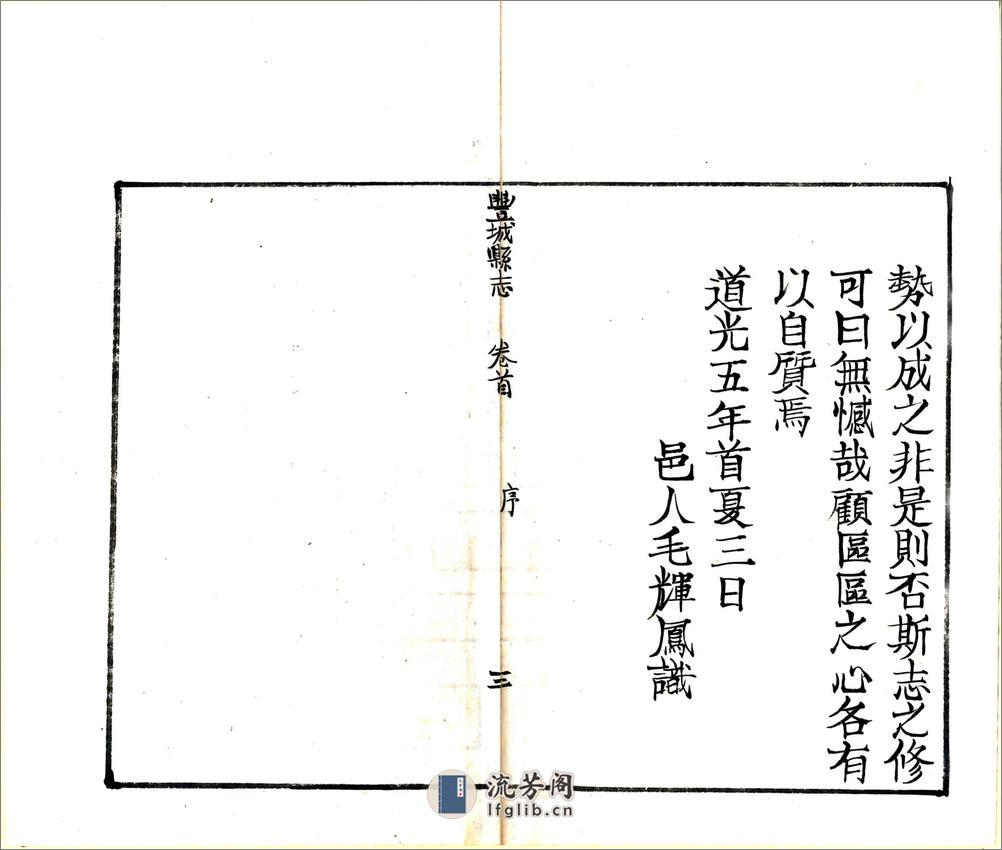 勢以成之非是則否斯志之修
可曰無憾哉顧區區之心各有
以自質焉
道光五年首夏三日
邑人毛輝鳳識
豐城縣志 卷首 序 三
流芳阁
lfglib.cn